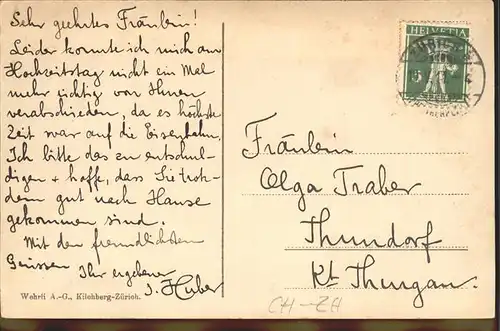 Sehr geehrtes Fräulein!
Leider konnte ich mich am
Hochzeitstag nicht ein Mal
mehr richtig von Ihnen
verabschieden, da es höchste
Zeit war auf die Eisenbahn.
Ich bitte das zu entschul-
digen & hoffe, dass Sie trotz-
dem gut nach Hause
gekommen sind.
Mit den freundlichsten
Grüssen
Ihr ergebener
J. Huber
Wehrli A.-G., Kilchberg-Zürich.
HELVETIA
5
Fräulein
Olga Traber
Thundorf
Kt Thurgau.
CH-ZH